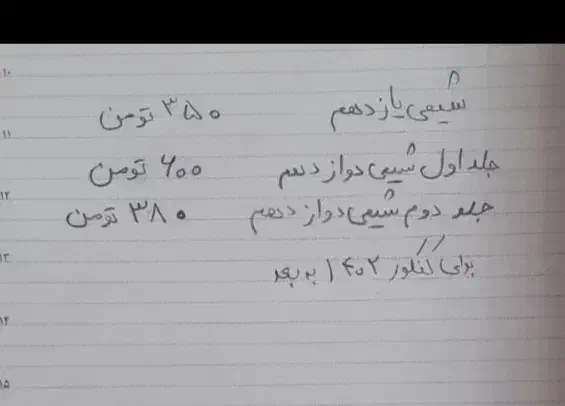 شیمی یازدهم ۳۵۰ تومن
جلد اول شیمی دوازدهم ۶۰۰ تومن
جلد دوم شیمی دوازدهم ۳۸۰ تومن
برای کنکور ۱۴۰۲ به بعد
۱۰
۱۱
۱۲
۱۳
۱۴
۱۵